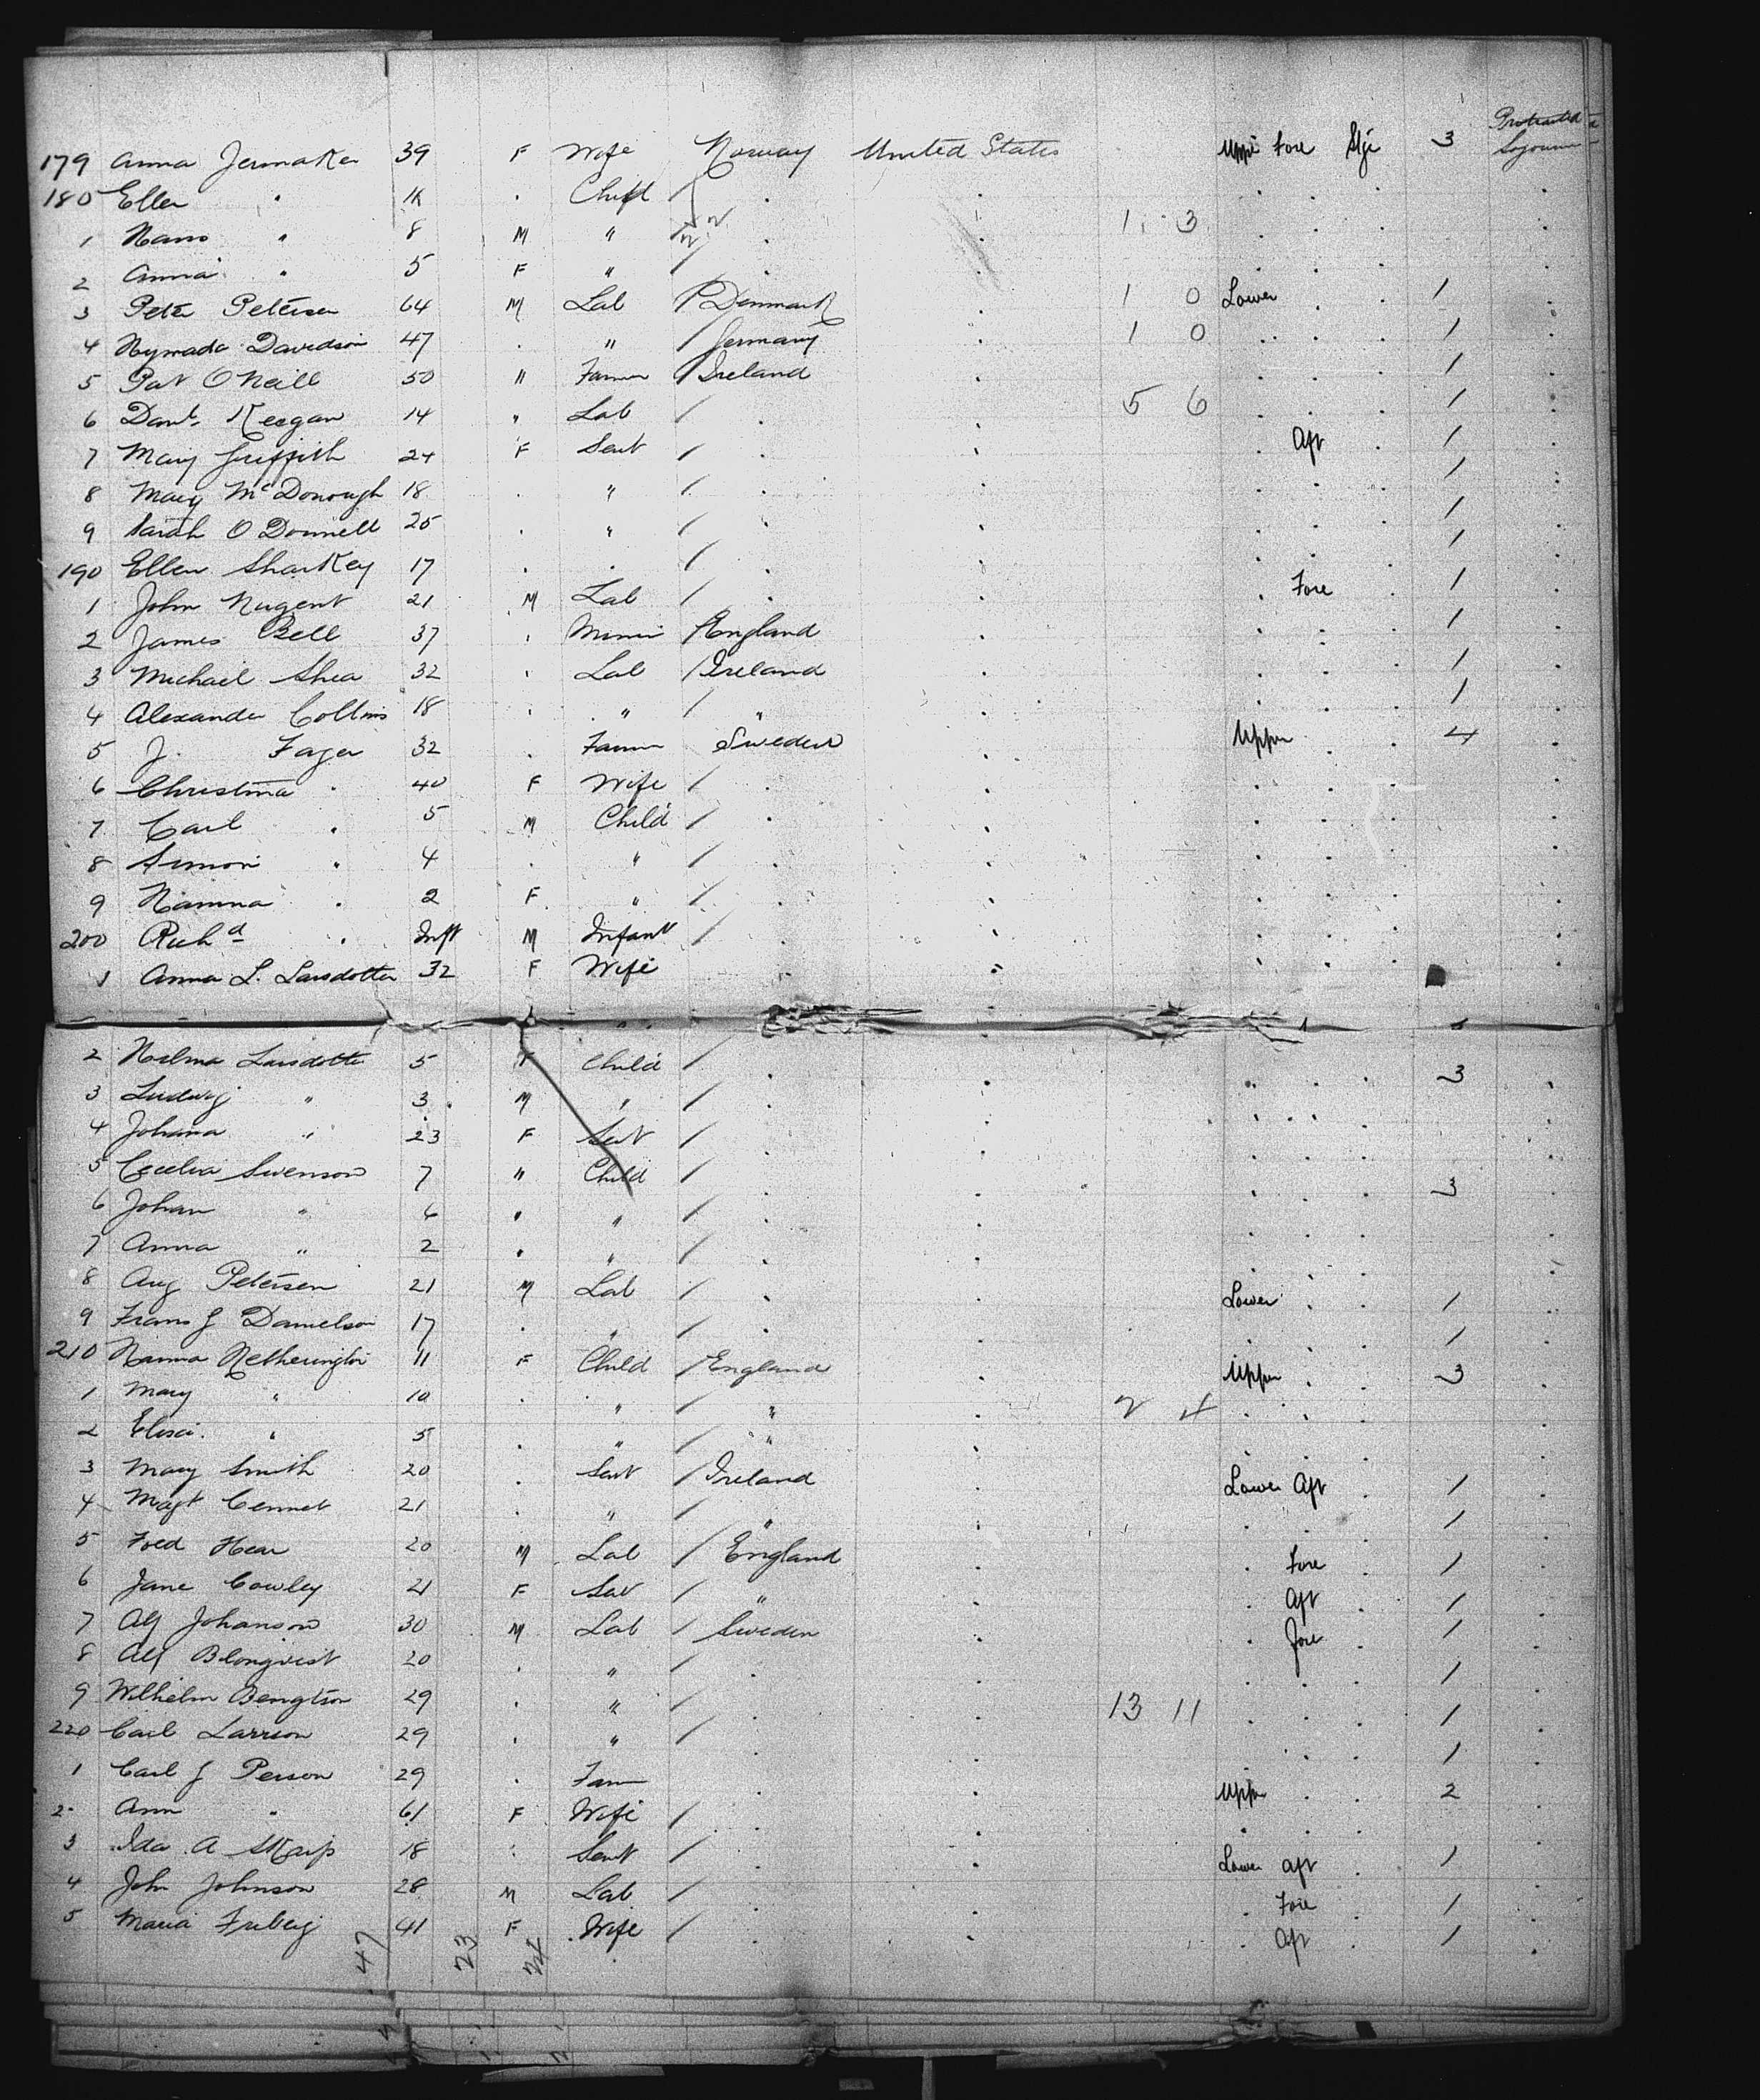 Protracted
179 Anna Jermaker 39 F Wife Norway United States Upper Fore Stge 3 Sojourn
180 Ellen " 11 . Child / . . . . .
1 Hans " 8 M " / . . 1 3 . . .
2 Anna " 5 F " / . . . . .
3 Peter Petersen 64 M Lab / Denmark . 1 0 Lower . . 1 .
4 Davidson 47 . " / Germany . 1 0 . . . 1 .
5 Pat O'Neill 50 " Farmer / Ireland . . . . 1 .
6 Danl. Keegan 14 " Lab / . . 5 6 . . . 1 .
7 Mary Griffith 24 F Sevt / . . . Aft . 1 .
8 Mary McDonough 18 . " / . . . . . 1 .
9 Sarah O Donnell 25 . " / . . . . . 1 .
190 Ellen Sharkey 17 . . / . . . . . 1 .
1 John Nugent 21 M Lab / . . . Fore . 1 .
2 James Bell 37 . Miner / England . . . . 1 .
3 Michael Shea 32 . Lab / Ireland . . . . 1 .
4 Alexander Collins 18 . " / " . . . . 1 .
5 J. Fager 32 . Farmer Sweden . Upper . . 4 .
6 Christina " 40 F Wife / . . . . . .
7 Carl " 5 M Child / . . . . . .
8 Simon " 4 . " / . . . . . .
9 Hanna " 2 F " / . . . . . .
200 Richd " Inft M Infant / . . . . . .
1 Anna L. Larsdotter 32 F Wife . . . . . .
2 Larsdotter 5 F Child / . . . . . 3 .
3 Ludwig " 3 M " / . . . . . .
4 Johana " 23 F Sevt / . . . . . .
5 Cecelia Swenson 7 " Child / . . . . . 3 .
6 Johan " 6 " " / . . . . . .
7 Anna " 2 " " / . . . . . .
8 Aug Petersen 21 M Lab / . . Lower . . 1 .
9 Frans J Danielson 17 . " / . . . . . 1 .
210 Hanna Hetherington 11 F Child / England . Upper . . 3 .
1 Mary " 10 . " / " . 2 4 . . . .
2 Eliza " 5 . " / " . . . . .
3 Mary Smith 20 . Sevt / Ireland . Lower Aft . 1 .
4 Magt Cennet 21 . " / " . . . . 1 .
5 Fred Hear 20 M Lab / England . . Fore . 1 .
6 Jane Cowley 21 F Sevt / " . . Aft . 1 .
7 Alf Johanson 30 M Lab / Sweden . . Fore . 1 .
8 Alf Blonqvist 20 . " / . . . . . 1 .
9 Wilhelm Bengtson 29 . " / . . 13 11 . . . 1 .
220 Carl Larrson 29 . " / . . . . . 1 .
1 Carl J Person 29 . Farm . . Upper . . 2 .
2 Ann " 61 F Wife / . . . . . .
3 Ida A Skarp 18 . Sevt / . . Lower Aft . 1 .
4 John Johnson 28 M Lab / . . . Fore . 1 .
5 Maria Friberg 41 F Wife / . . . Aft . 1 .
47 23 24